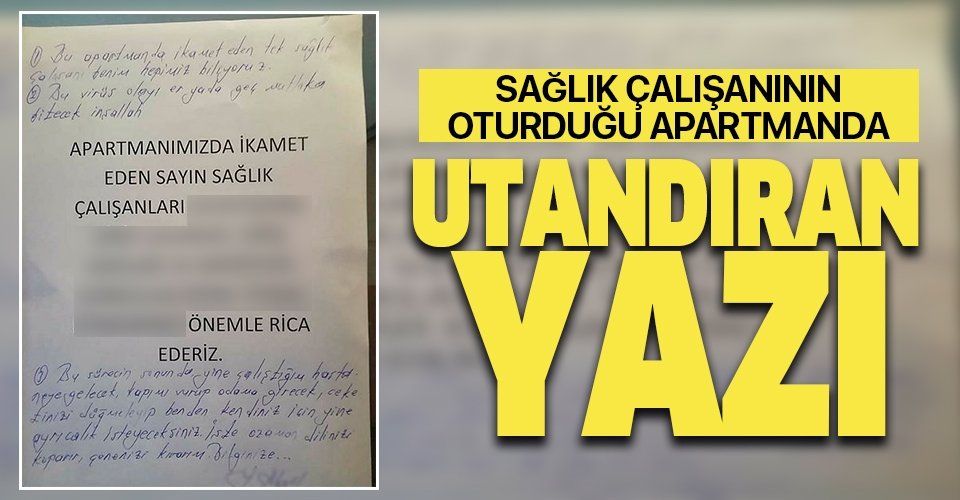 ① Bu apartmanda ikamet eden tek sağlık
çalışanı benim hepimiz biliyoruz.
② Bu virüs olayı er yada geç mutlaka
bitecek inşallah
APARTMANIMIZDA İKAMET
EDEN SAYIN SAĞLIK
ÇALIŞANLARI
ÖNEMLE RİCA
EDERİZ.
③ Bu sürecin sonunda, yine çalıştığım hasta-
neye gelecek, kapımı vurup odama girecek, ceke
tinizi düğmeleyip benden kendiniz için yine
ayrıcalık isteyeceksiniz. İşte o zaman dilinizi
koparır, çenenizi kırarım. Bilginize...
SAĞLIK ÇALIŞANININ
OTURDUĞU APARTMANDA
UTANDIRAN
YAZI